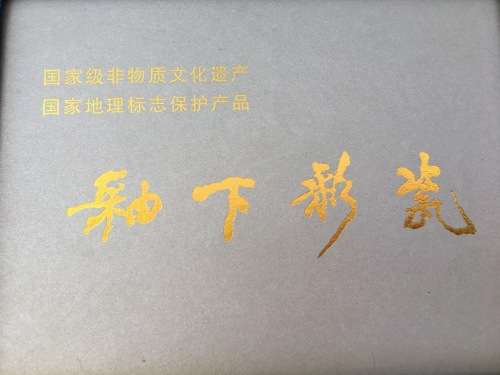 国家级非物质文化遗产
国家地理标志保护产品
釉下彩瓷